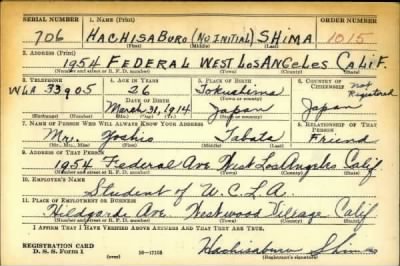 SERIAL NUMBER 1. NAME (Print) ORDER NUMBER
706 HACHISABURO (NO INITIAL) SHIMA 1015
(First) (Middle) (Last)
2. ADDRESS (Print)
1954 FEDERAL WEST LOS ANGELES CALIF.
(Number and street or R. F. D. number) (Town) (County) (State)
3. TELEPHONE 4. AGE IN YEARS 5. PLACE OF BIRTH 6. COUNTRY OF CITIZENSHIP
WLA 33905 26 Tokushima not Registered
DATE OF BIRTH (Town or county)
March 31, 1914 Japan Japan
(Mo.) (Day) (Yr.) (State or country)
7. NAME OF PERSON WHO WILL ALWAYS KNOW YOUR ADDRESS 8. RELATIONSHIP OF THAT PERSON
Mr. Yoshio Tabata Friend
(Mr., Mrs., Miss) (First) (Middle) (Last)
9. ADDRESS OF THAT PERSON
1954 Federal Ave. West Los Angeles Calif.
(Number and street or R. F. D. number) (Town) (County) (State)
10. EMPLOYER'S NAME
Student of U.C.L.A.
11. PLACE OF EMPLOYMENT OR BUSINESS
Hildgarde Ave. Westwood Village Calif.
(Number and street or R. F. D. number) (Town) (County) (State)
I AFFIRM THAT I HAVE VERIFIED ABOVE ANSWERS AND THAT THEY ARE TRUE.
REGISTRATION CARD
D. S. S. Form 1 16—17105 Hachisaburo Shima
(Registrant's signature)